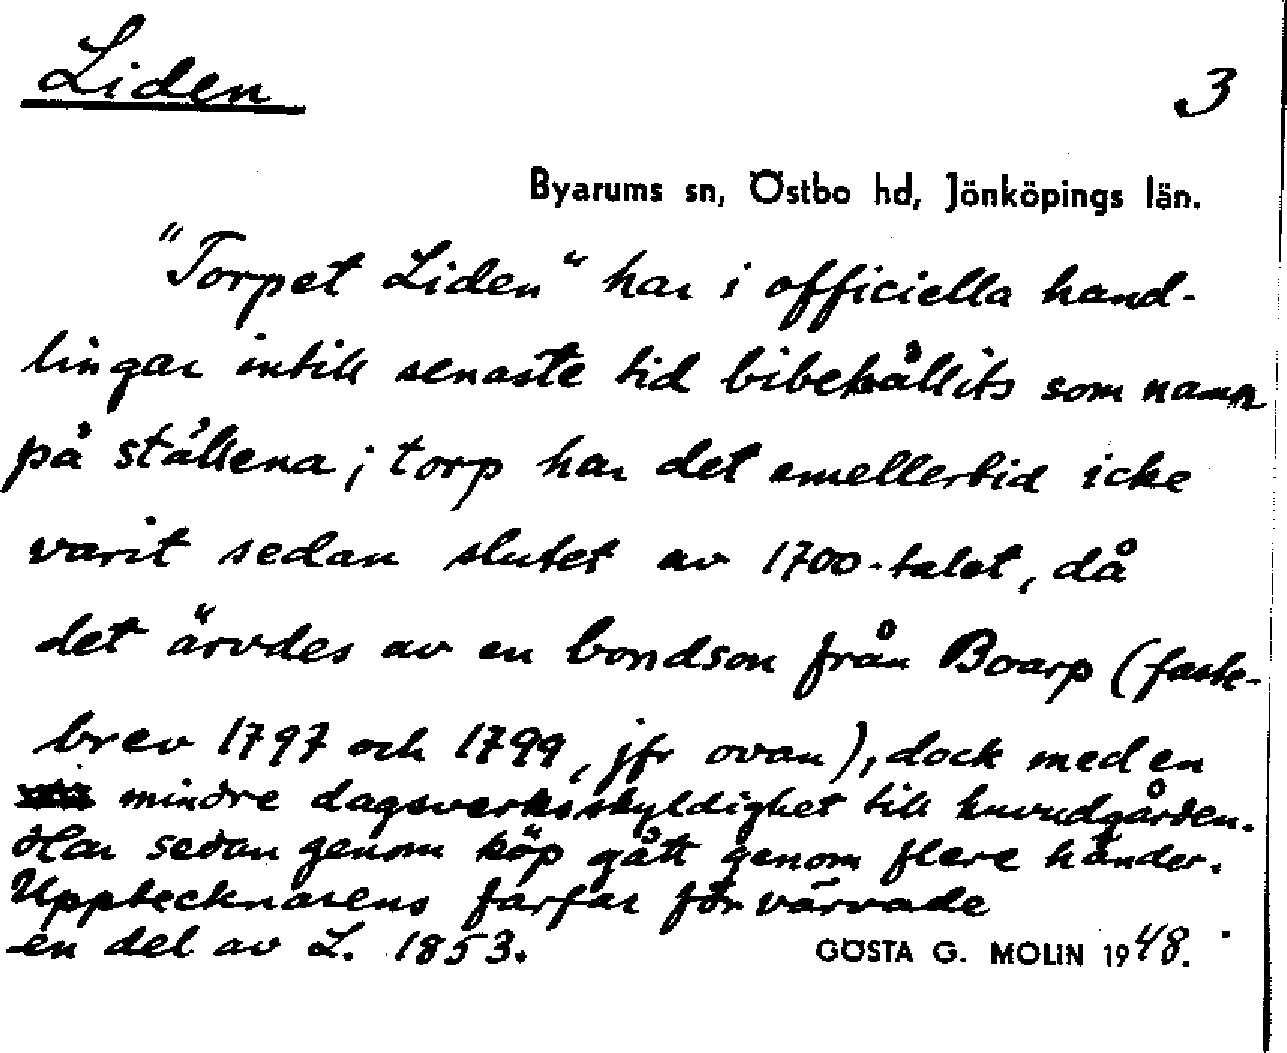 Liden
3
Byarums sn, Östbo hd, Jönköpings län.
"Torpet Liden" har i officiella hand-
lingar intill senaste tid bibehållits som namn
på ställena; torp har det emellertid icke
varit sedan slutet av 1700-talet, då
det ärvdes av en bondson från Boarp (faste-
brev 1797 och 1799, jfr ovan), dock med en
mindre dagsverksskyldighet till huvudgården.
Har sedan genom köp gått genom flere händer.
Upptecknarens farfar förvärvade
en del av L. 1853.
GÖSTA G. MOLIN 1948.